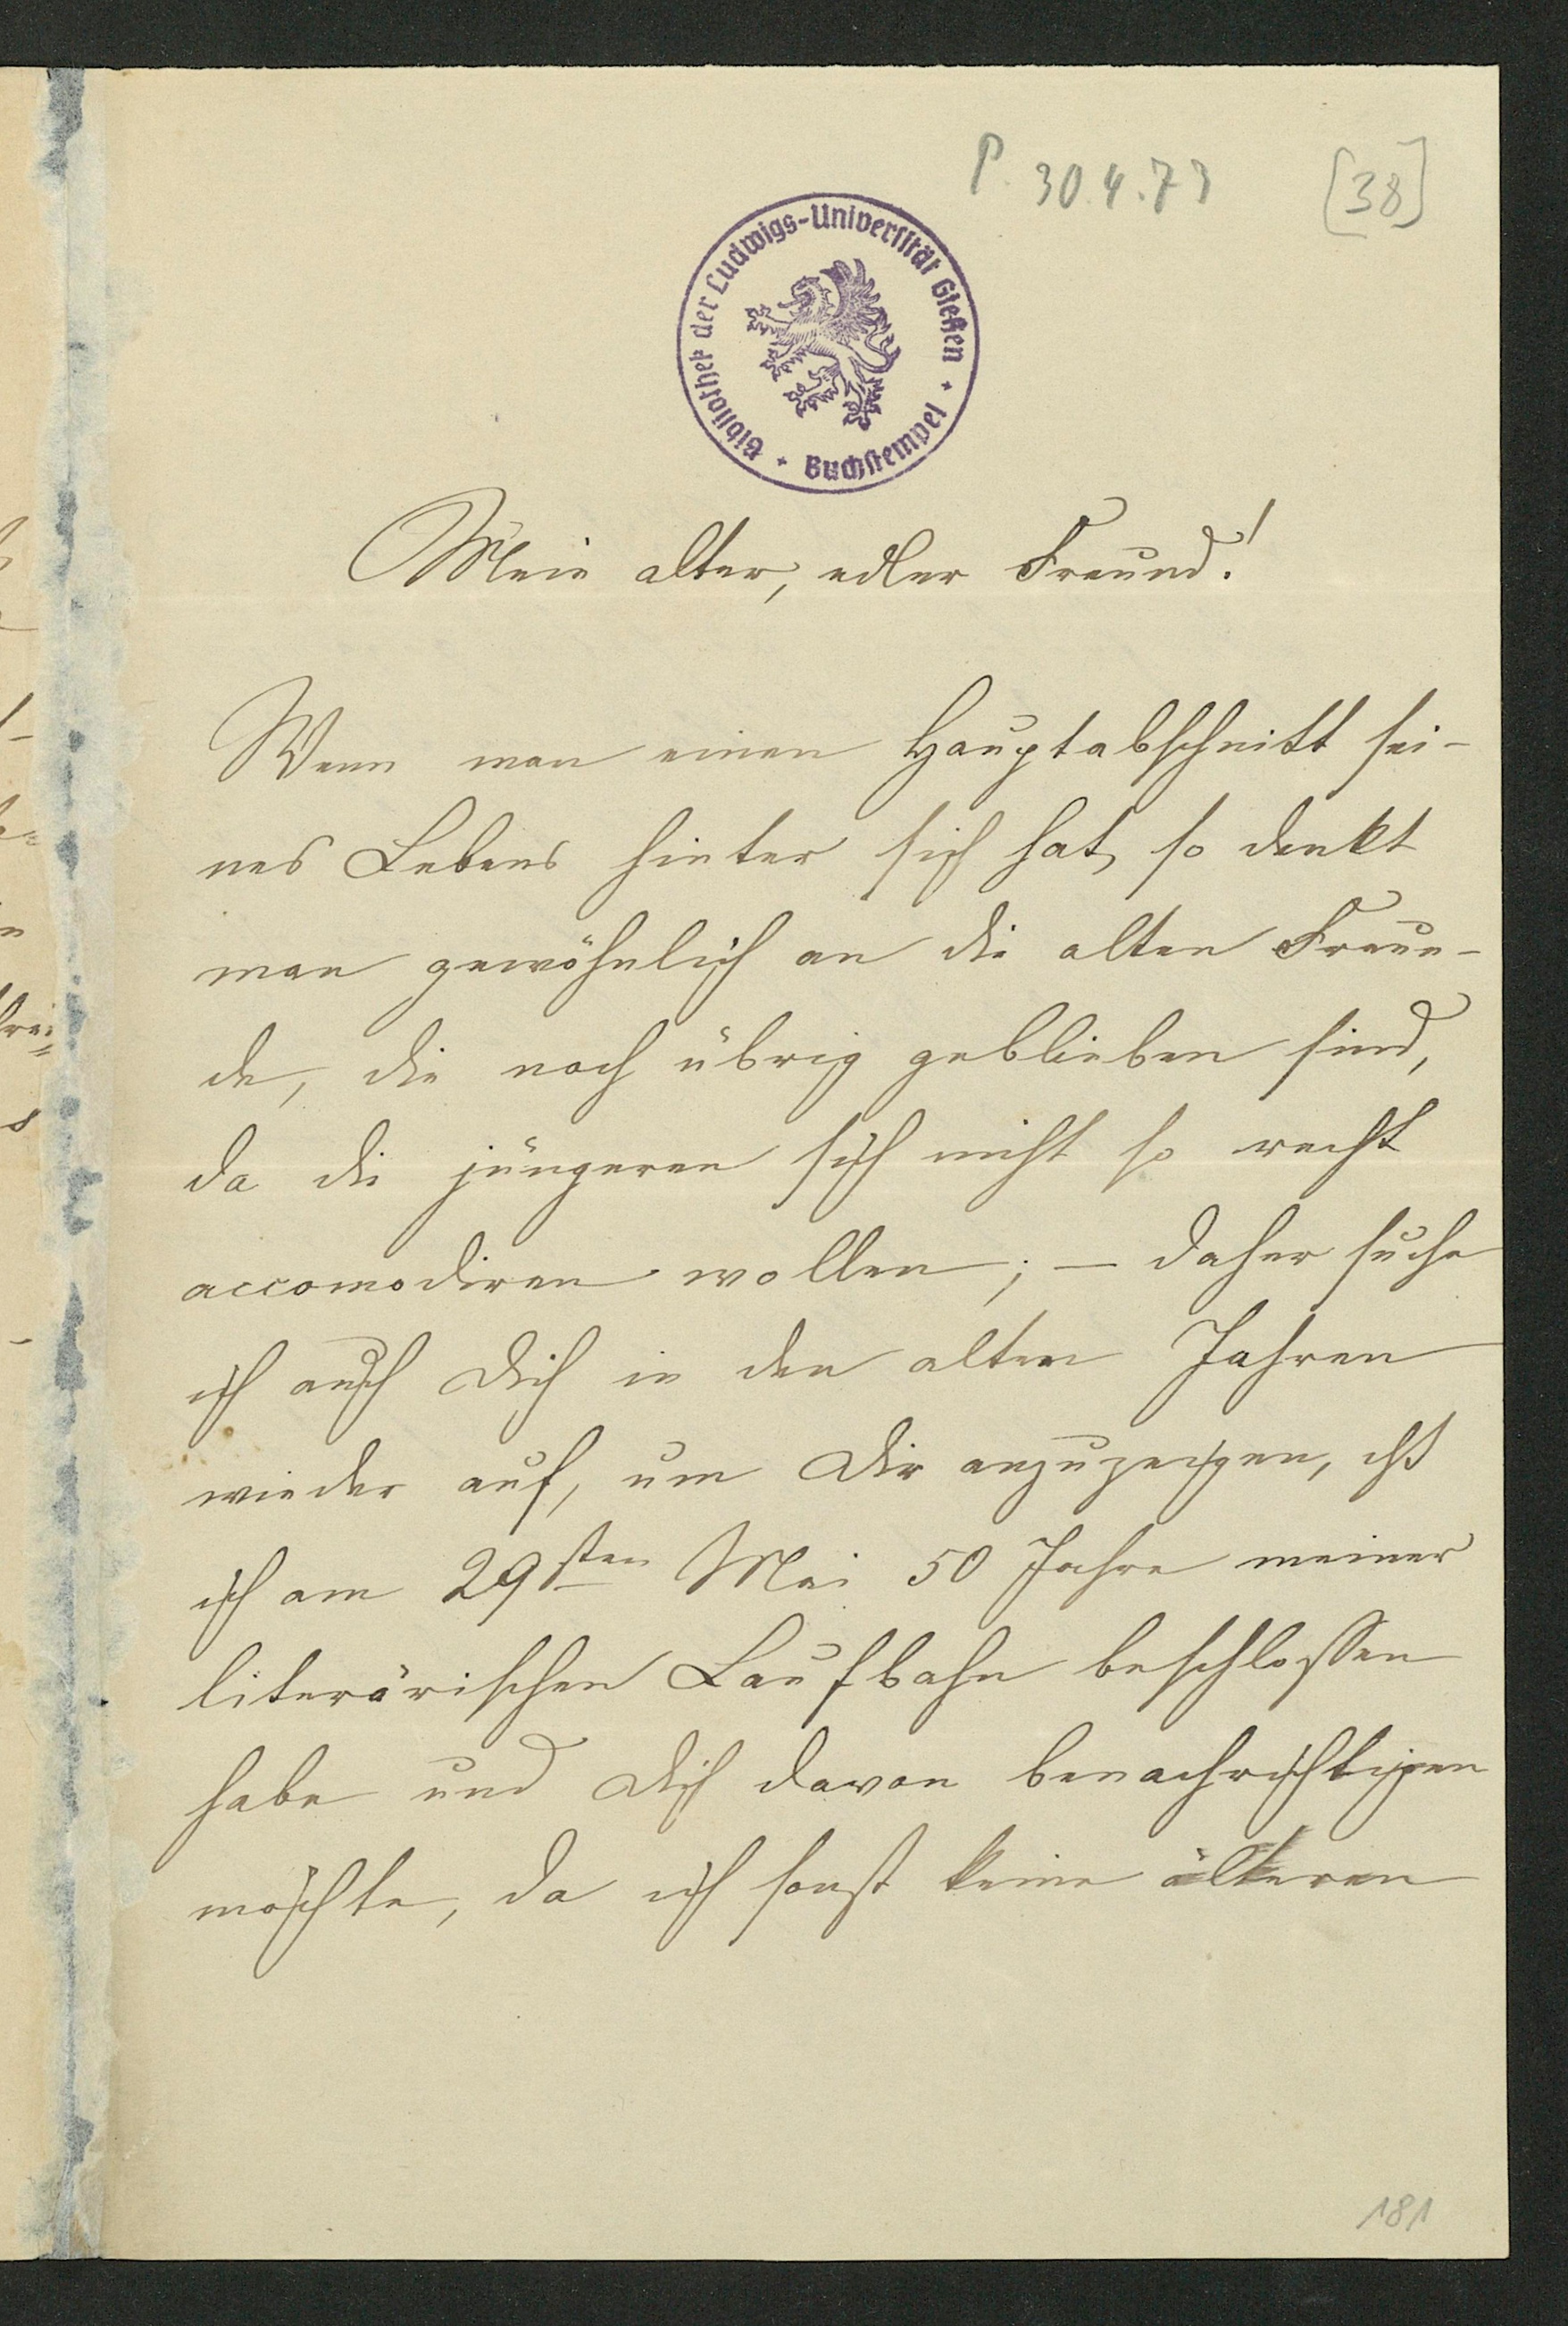 P. 30.4.73 [38]
Bibliothek der Ludwigs-Universität Gießen
Buchstempel
Mein alter, edler Freund!
Wenn man einen Hauptabschnitt sei-
nes Lebens hinter sich hat, so denkt
man gewöhnlich an die alten Freun-
de, die noch übrig geblieben sind,
da die jüngeren sich nicht so recht
accomodiren wollen; – daher suche
ich auch Dich in den alten Jahren
wieder auf, um Dir anzuzeigen,
ich am 29sten Mai 50 Jahre meiner
literärischen Laufbahn beschlossen
habe und Dich davon benachrichtigen
möchte, da ich sonst keine älteren
181